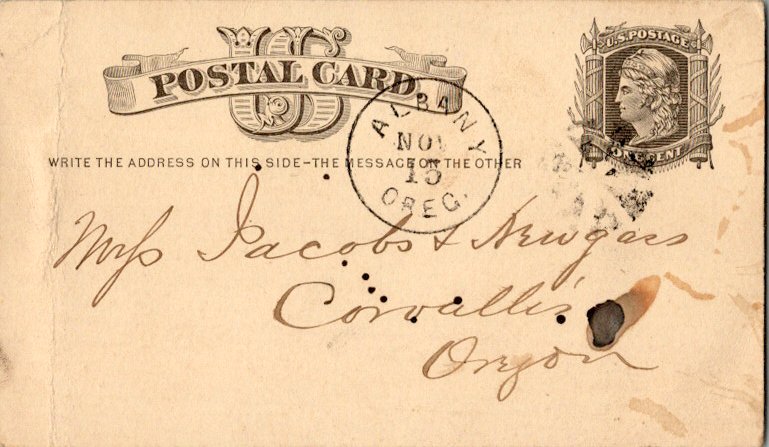 US
POSTAL CARD
U.S. POSTAGE
ONE CENT
ALBANY
NOV
15
OREG.
WRITE THE ADDRESS ON THIS SIDE-THE MESSAGE ON THE OTHER
Messs Jacobs & Newgass
Corvallis
Oregon